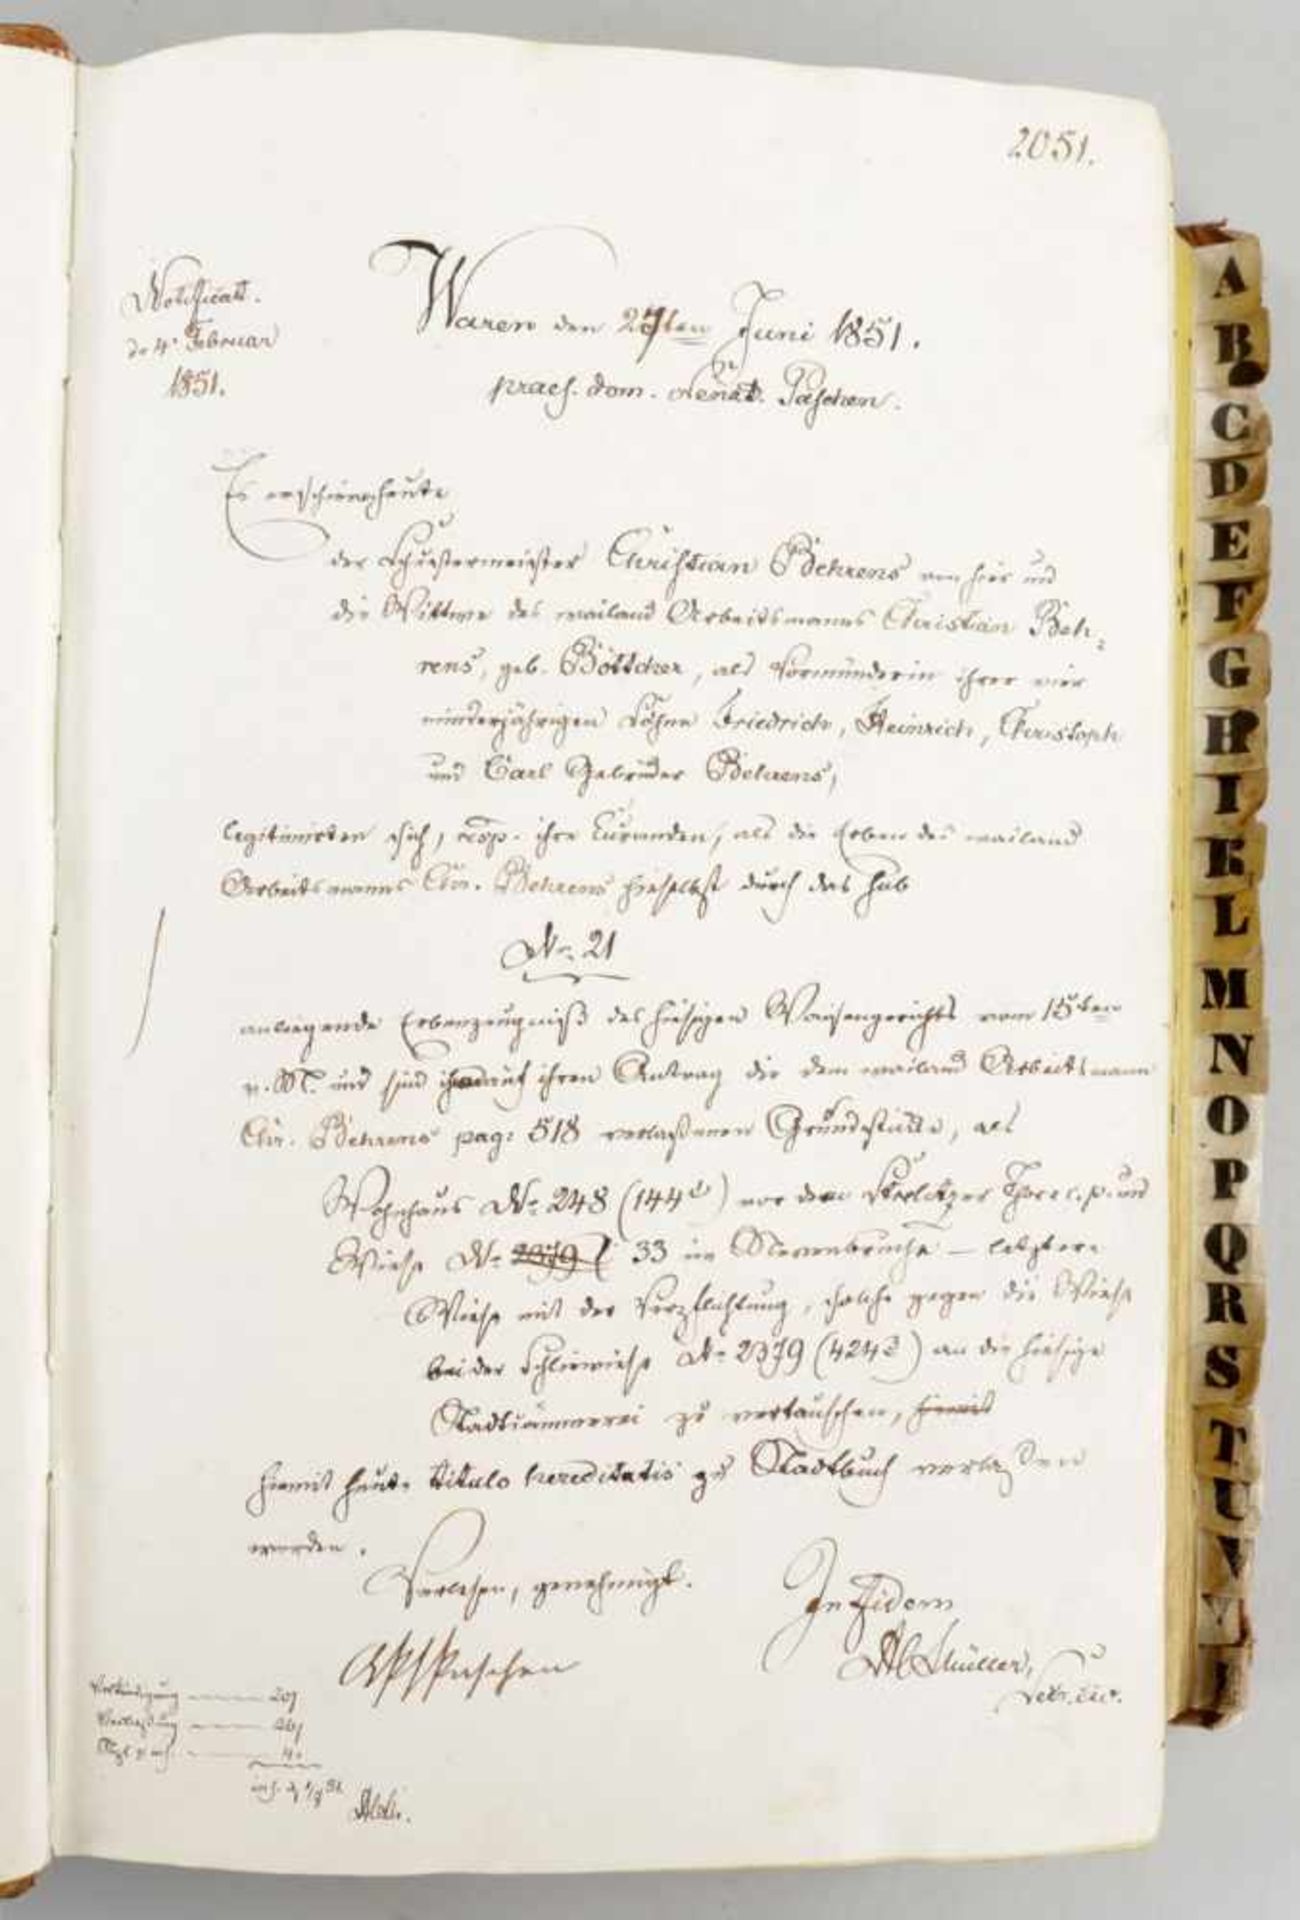 2051.
Notificatt.
de 4t Februar
1851.
Waren den 27ten Juni 1851.
praes. dom. Senat. Päschen.
Es erschienen heute
der Schustermeister Christian Behrens von hier und
die Wittwe des weiland Arbeitsmanns Christian Beh-
rens, geb. Böttcher, als Vormünderin ihrer vier
minderjährigen Söhne Friedrich, Heinrich, Christoph
und Carl Gebrüder Behrens,
legitimirten sich, resp. ihre Curanden, als die Erben des weiland
Arbeitsmanns Chr. Behrens hieselbst durch das sub
No. 21
anliegende Erbenzeugniß des hiesigen Waisengerichts vom 15ten
v. M. und sind auf ihren Antrag die dem weiland Arbeitsmann
Chr. Behrens pag: 518 verlaßenen Grundstücke, als
Wohnhaus No. 248 (144 ) vor dem Thore c. p. und
Wiese No. 2379 33 im – letztere
Wiese mit der Verpflichtung, solche gegen die Wiese
bei der No. 2379 (424 ) an die hiesige
Stadtcämmerei zu vertauschen, hiemit
hiemit heute titulo hereditatis zu Stadtbuch verlaßen
worden.
Vorlesen, genehmigt.
In fidem
Päschen
Müller,
Secr. civ.
Verkündigung — 20
Verlaßung —
A
B
C
D
E
F
G
H
I
K
L
M
N
O
P
Q
R
S
T
U
V